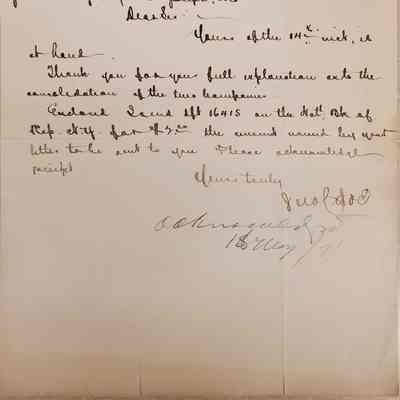 Dear Sir
Yours of the 14th inst. is
at hand.
Thank you for your full explanation as to the
consolidation of the two companies
Enclosed I send dft 16415 on the Natl. Bk of
Rep. N.Y. for the amount named by your
letter to be sent to you Please acknowledge
receipt
Yours truly
Jno
18 May / 71